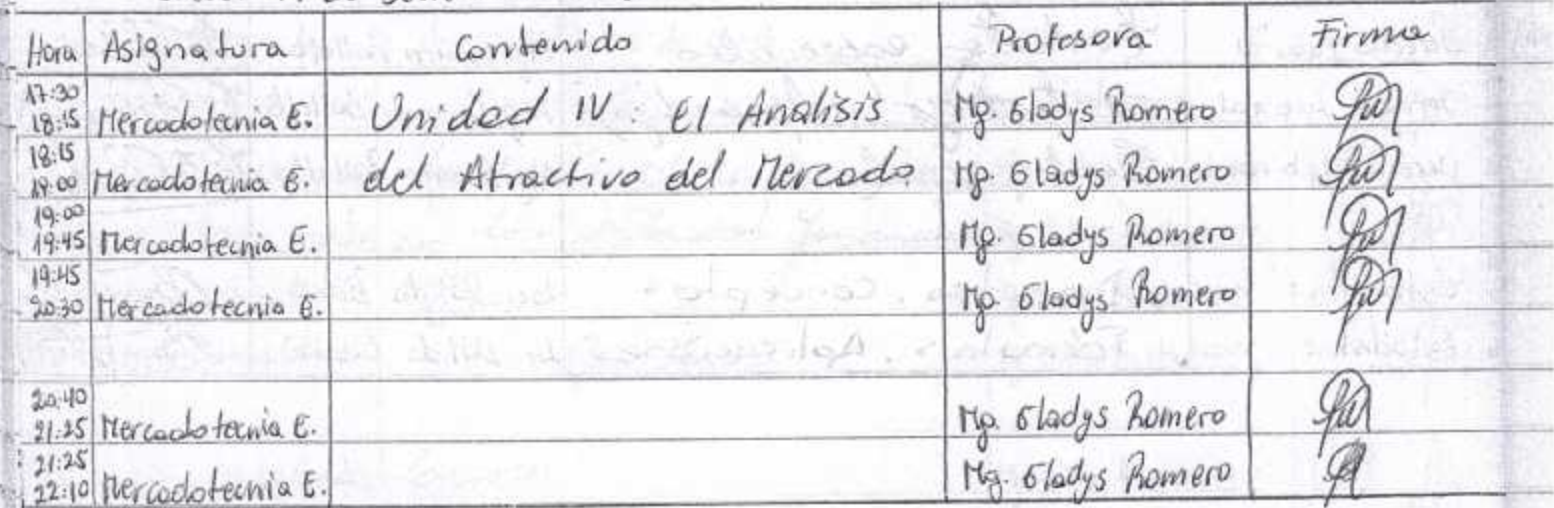 Hora Asignatura Contenido Profesora Firma
17:30
18:15 Mercadotecnia E. Unidad IV: El Analisis Mg. Gladys Romero
18:15
19:00 Mercadotecnia E. del Atractivo del Mercado Mg. Gladys Romero
19:00
19:45 Mercadotecnia E. Mg. Gladys Romero
19:45
20:30 Mercadotecnia E. Mg. Gladys Romero
20:40
21:25 Mercadotecnia E. Mg. Gladys Romero
21:25
22:10 Mercadotecnia E. Mg. Gladys Romero